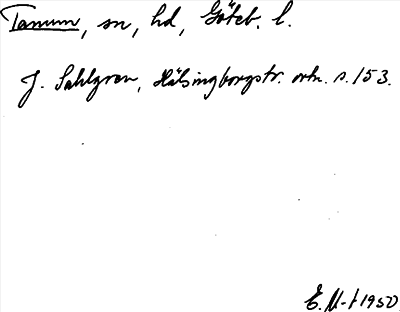 Tanum, sn, hd, Göteb. l.
J. Sahlgren, Hälsingborgstr. ortn. s. 153.
E. M-t 1950